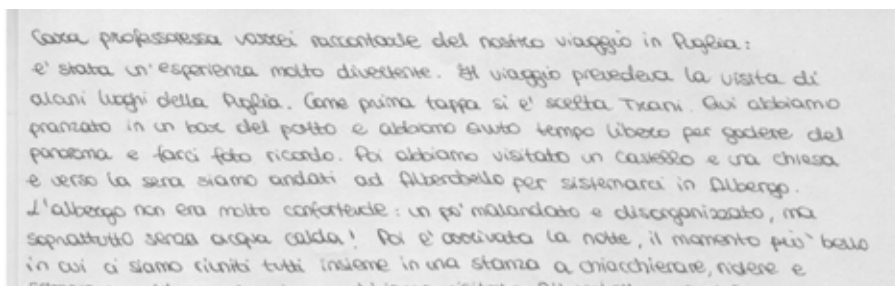 Cara professoressa vorrei raccontarle del nostro viaggio in Puglia:
e' stata un'esperienza molto divertente. Il viaggio prevedeva la visita di
alcuni luoghi della Puglia. Come prima tappa si e' scelta Trani. Qui abbiamo
pranzato in un bar del porto e abbiamo avuto tempo libero per godere del
panorama e farci foto ricordo. Poi abbiamo visitato un castello e una chiesa
e verso la sera siamo andati ad Alberobello per sistemarci in Albergo.
L'albergo non era molto confortevole: un po' malandato e disorganizzato, ma
soprattutto senza acqua calda! Poi e' arrivata la notte, il momento piu' bello
in cui ci siamo riuniti tutti insieme in una stanza a chiacchierare, ridere e